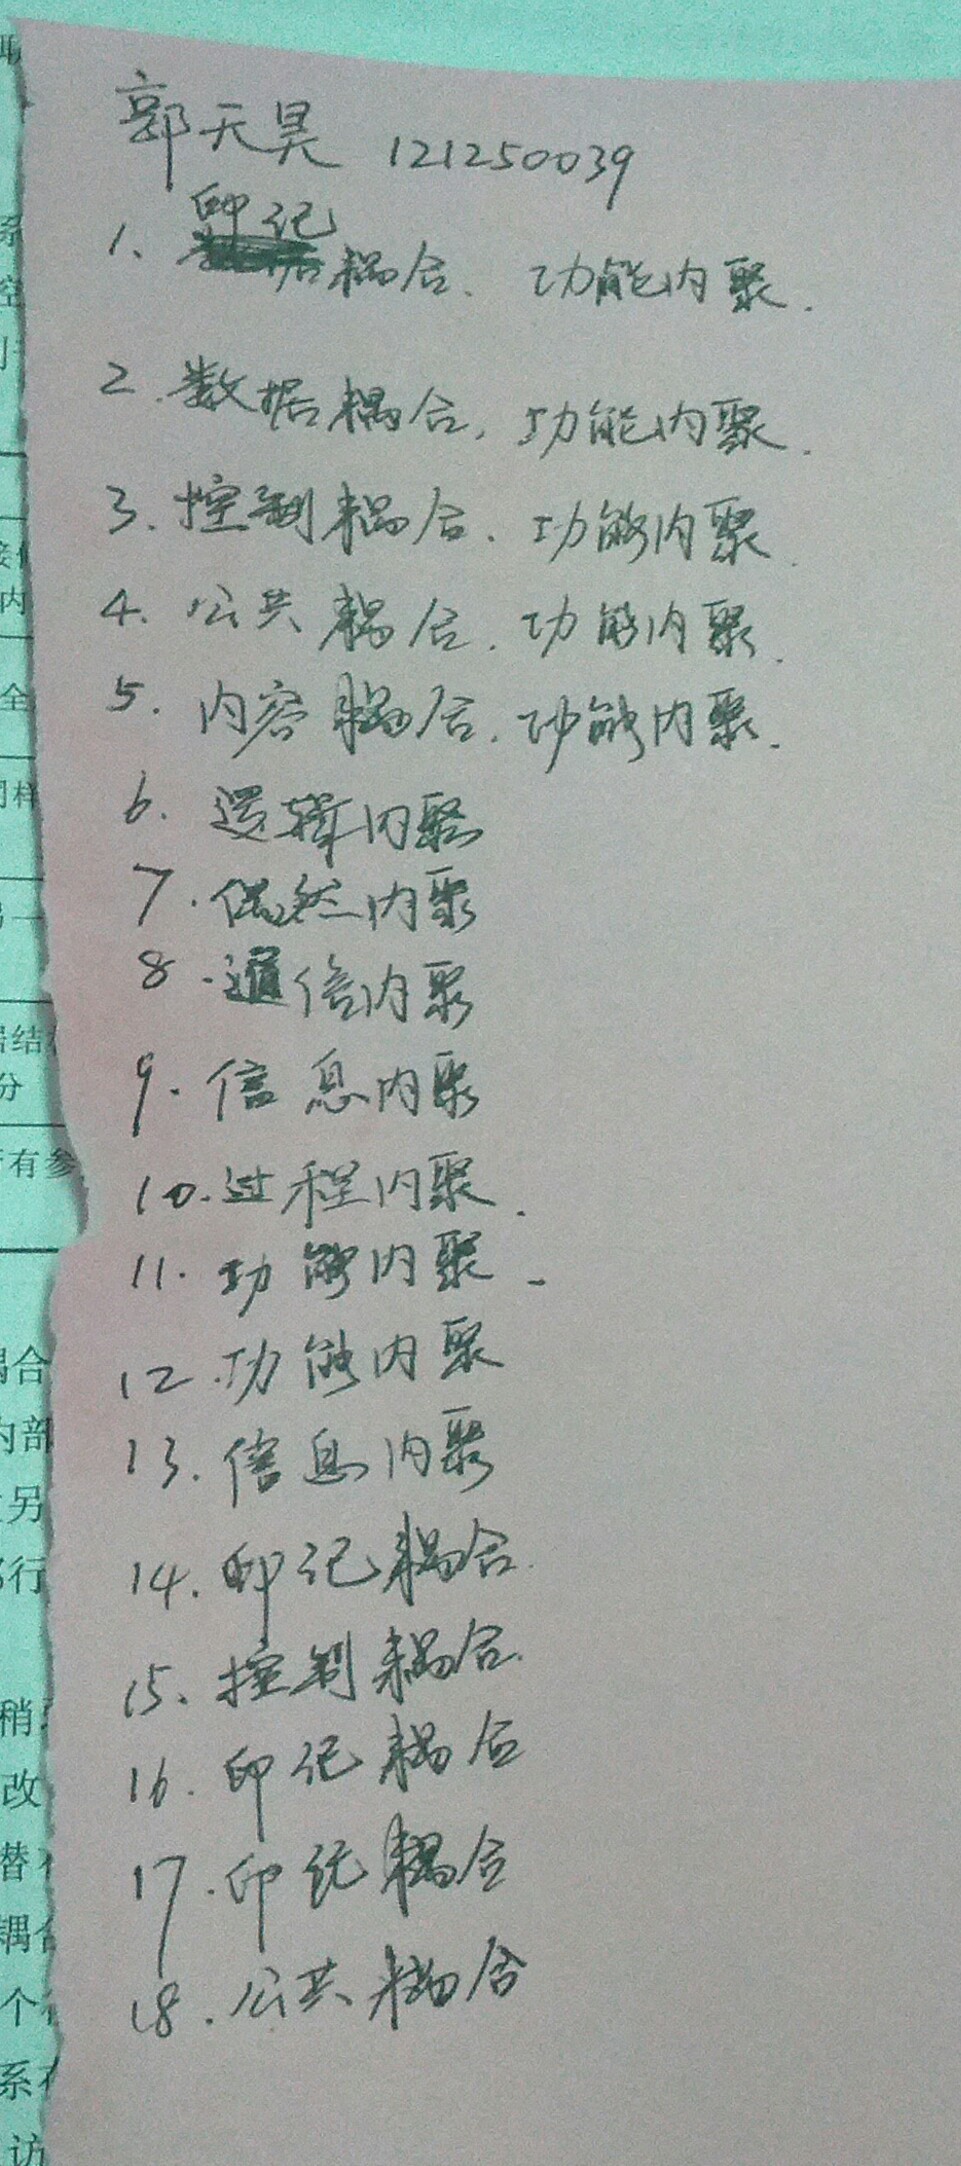 郭天昊 121250039
1、印记耦合、功能内聚.
2.数据耦合,功能内聚.
3.控制耦合、功能内聚.
4.公共耦合,功能内聚.
5.内容耦合,功能内聚.
6.逻辑内聚
7.偶然内聚
8.通信内聚
9.信息内聚
10.过程内聚.
11.功能内聚.
12.功能内聚
13.信息内聚
14.印记耦合.
15.控制耦合.
16.印记耦合
17.印记耦合
18.公共耦合
全
有参
内部
另
行
稍
改
替
个
系
访